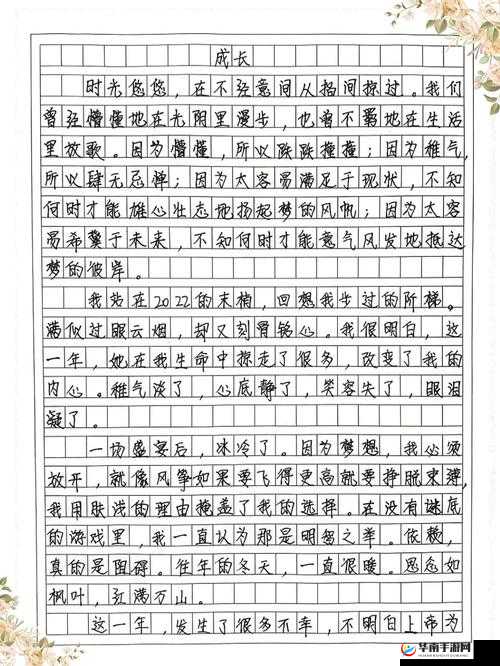 成长
时光悠悠，在不经意间从指间掠过。我们
曾经懵懂地在光阴里漫步，也曾不羁地在生活
里放歌。因为懵懂，所以跌跌撞撞；因为稚气，
所以肆无忌惮；因为太容易满足于现状，不知
何时才能雄心壮志地扬起梦的风帆；因为太容
易希冀于未来，不知何时才能意气风发地抵达
梦的彼岸。
我站在2022的末梢，回想我步过的阶梯。
满似过眼云烟，却又刻骨铭心。我很明白，这
一年，她在我生命中掠走了很多，改变了我的
内心。稚气淡了，心底静了，笑容失了，眼泪
凝了。
一场盛宴后，冰冷了。因为梦想，我必须
放开，就像风筝如果要飞得更高就要挣脱束缚，
我用肤浅的理由掩盖了我的选择。在没有谜底
的游戏里，我一直认为那是明智之举。依赖，
真的是阻碍。往年的冬天，一直很暖。思念如
枫叶，红满万山。
这一年，发生了很多不幸，不明白上帝为
华南手游网